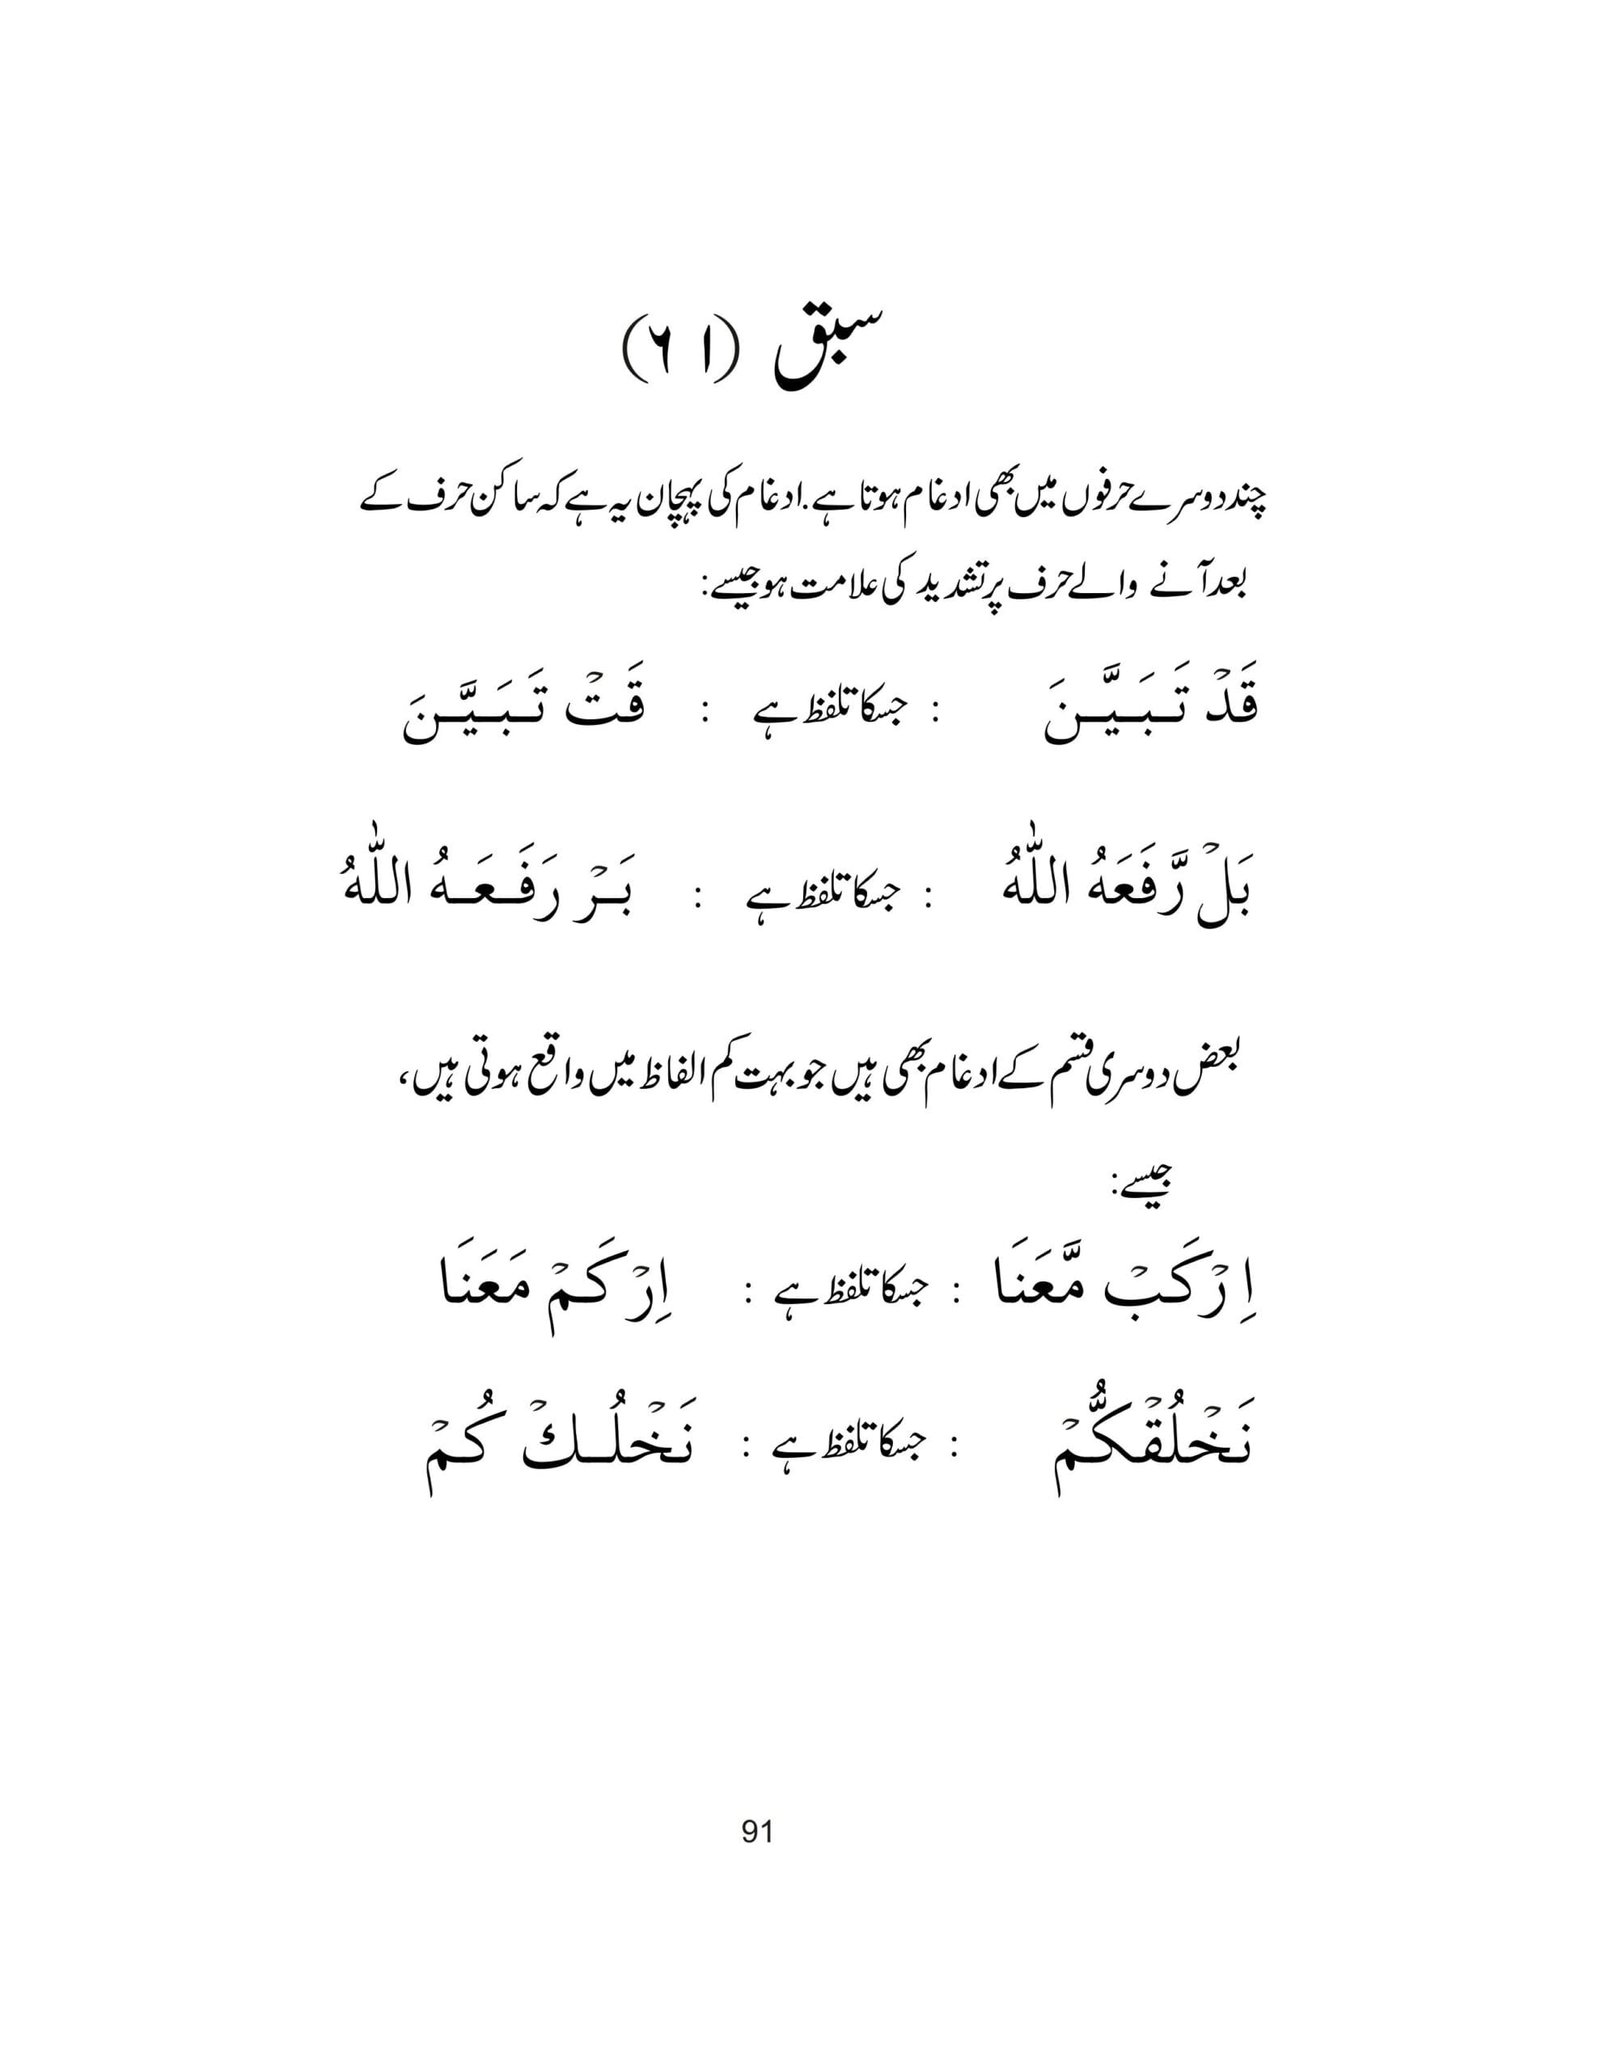 سبق (۶۱)
چند دوسرے حرفوں میں بھی ادغام ہوتا ہے. ادغام کی پہچان یہ ہے کہ ساکن حرف کے
بعد آنے والے حرف پر تشدید کی علامت ہو جیسے:
قَدْ تَبَيَّنَ : جسکا تلفظ ہے : قَتْ تَبَيَّنَ
بَلْ رَّفَعَهُ اللّٰهُ : جسکا تلفظ ہے : بَرْ رَفَعَهُ اللّٰهُ
بعض دوسری قسم کے ادغام بھی ہیں جو بہت کم الفاظ میں واقع ہوتی ہیں،
جیسے:
اِرْكَبْ مَّعَنَا : جسکا تلفظ ہے : اِرْكَمْ مَعَنَا
نَخْلُقْكُّمْ : جسکا تلفظ ہے : نَخْلُكْ كُمْ
91